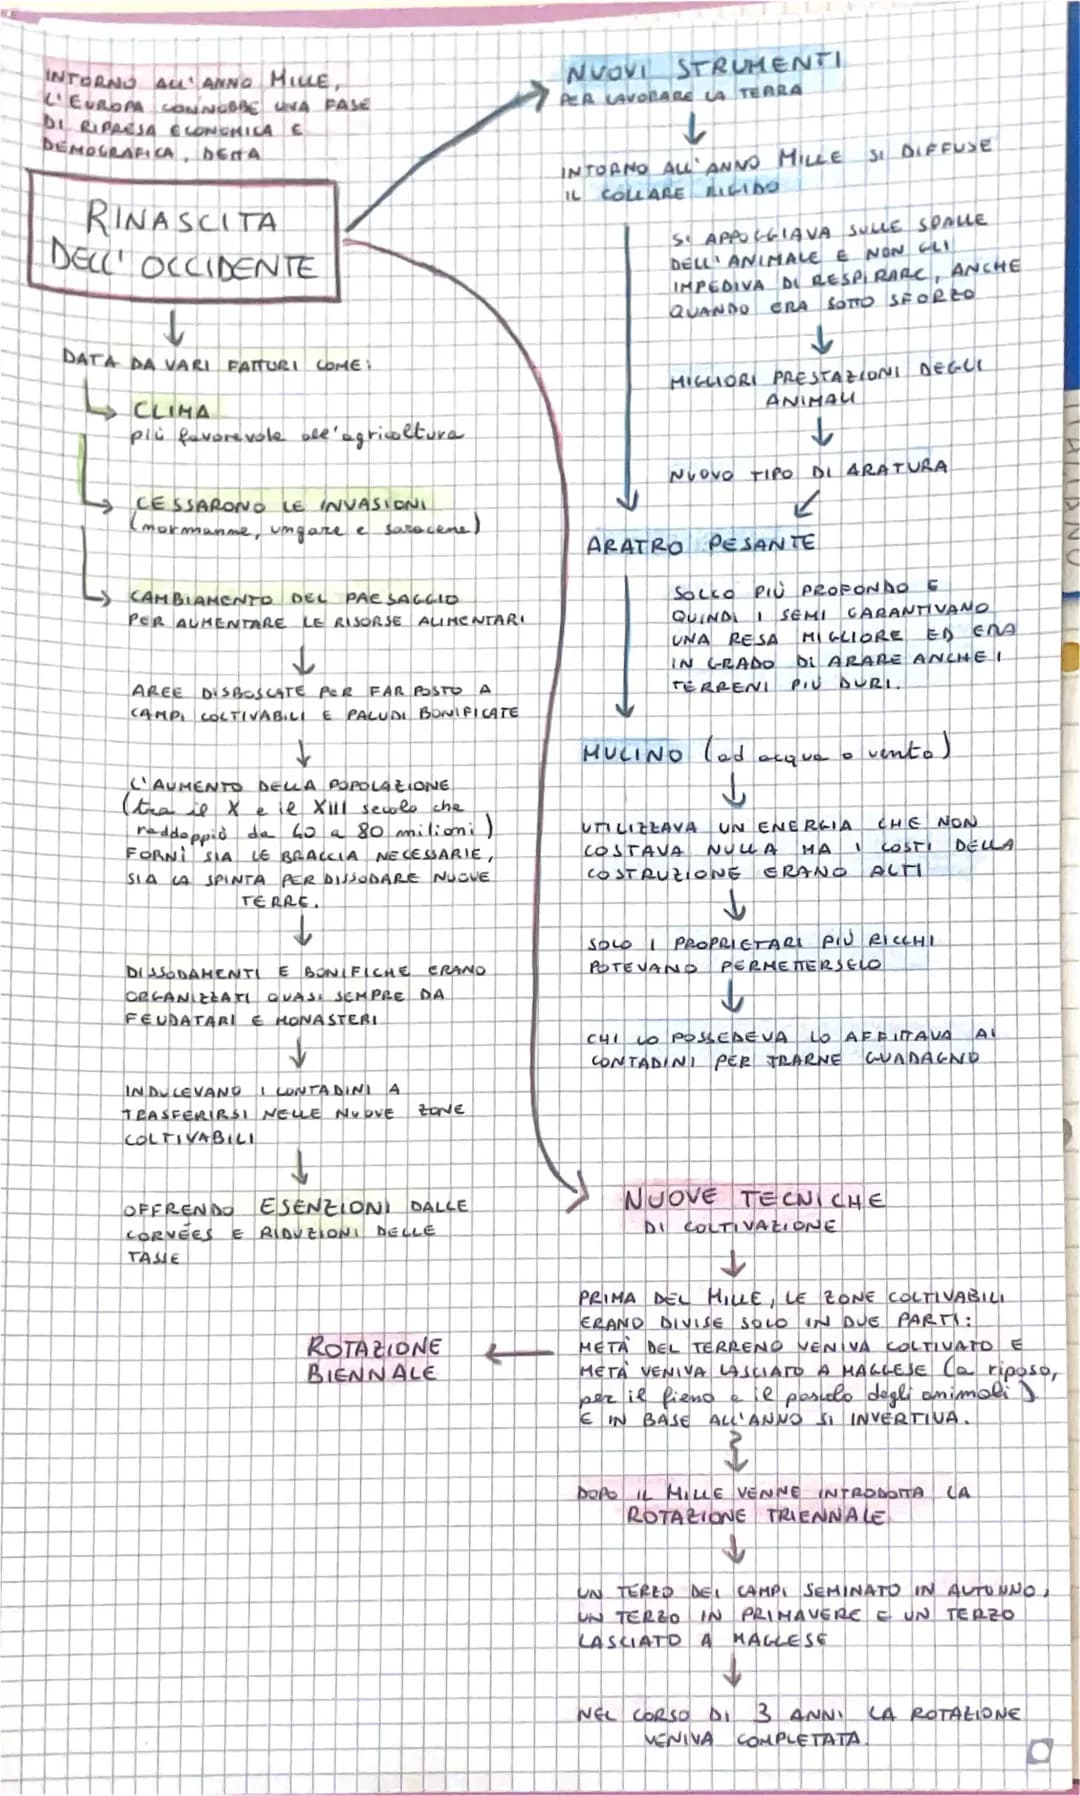 INTORNO ALL'ANNO MILLE,
L'EUROPA CONNOBBE UNA FASE
DI RIPRESA ECONOMICA E
DEMOGRAFICA, DETTA
RINASCITA
DELL'OCCIDENTE
DATA DA VARI FATTORI COME:
CLIMA
più favorevole all'agricoltura
CESSARONO LE INVASIONI
(normanne, ungare e saracene)
CAMBIAMENTO DEL PAESAGGIO
PER AUMENTARE LE RISORSE ALIMENTARI
AREE DISBOSCATE PER FAR POSTO A
CAMPI COLTIVABILI E PALUDI BONIFICATE
L'AUMENTO DELLA POPOLAZIONE
(tra il X e il XIII secolo che
raddoppiò da 40 a 80 milioni)
FORNÌ SIA LE BRACCIA NECESSARIE,
SIA LA SPINTA PER DISSODARE NUOVE
TERRE.
DISSODAMENTI E BONIFICHE ERANO
ORGANIZZATI QUASI SEMPRE DA
FEUDATARI E MONASTERI
INDUCEVANO I CONTADINI A
TRASFERIRSI NELLE NUOVE ZONE
COLTIVABILI
OFFRENDO ESENZIONI DALLE
CORVÉES E RIDUZIONI DELLE
TASSE
NUOVI STRUMENTI
PER LAVORARE LA TERRA
INTORNO ALL'ANNO MILLE SI DIFFUSE
IL COLLARE RIGIDO
SI APPOGGIAVA SULLE SPALLE
DELL'ANIMALE E NON GLI
IMPEDIVA DI RESPIRARE, ANCHE
QUANDO ERA SOTTO SFORZO
MIGLIORI PRESTAZIONI DEGLI
ANIMALI
NUOVO TIPO DI ARATURA
ARATRO PESANTE
SOLCO PIÙ PROFONDO E
QUINDI I SEMI GARANTIVANO
UNA RESA MIGLIORE ED ERA
IN GRADO DI ARARE ANCHE I
TERRENI PIÙ DURI.
MULINO (ad acqua o vento)
UTILIZZAVA UN ENERGIA CHE NON
COSTAVA NULLA MA I COSTI DELLA
COSTRUZIONE ERANO ALTI
SOLO I PROPRIETARI PIÙ RICCHI
POTEVANO PERMETTERSELO
CHI LO POSSEDEVA LO AFFITTAVA AI
CONTADINI PER TRARNE GUADAGNO
NUOVE TECNICHE
DI COLTIVAZIONE
PRIMA DEL MILLE, LE ZONE COLTIVABILI
ERANO DIVISE SOLO IN DUE PARTI:
METÀ DEL TERRENO VENIVA COLTIVATO E
METÀ VENIVA LASCIATO A MAGGESE (a riposo,
per il fieno e il pascolo degli animali)
E IN BASE ALL'ANNO SI INVERTIVA.
ROTAZIONE
BIENNALE
DOPO IL MILLE VENNE INTRODOTTA LA
ROTAZIONE TRIENNALE
UN TERZO DEI CAMPI SEMINATO IN AUTUNNO,
UN TERZO IN PRIMAVERE E UN TERZO
LASCIATO A MAGGESE
NEL CORSO DI 3 ANNI LA ROTAZIONE
VENIVA COMPLETATA.
ITALIANO